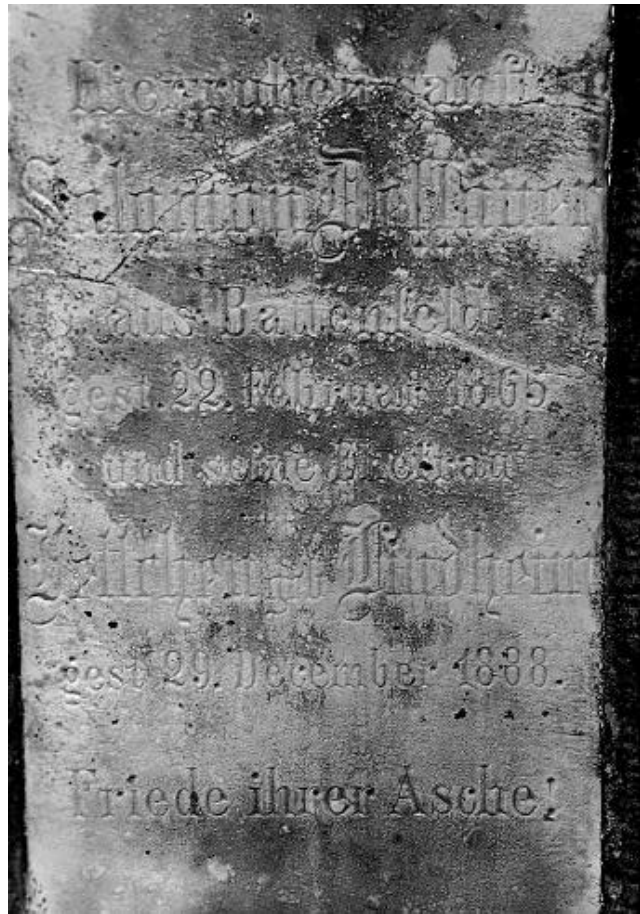 Hier ruhen sanft
Salomon Dessauer
aus Battenfeld
gest. 22. Februar 1865
und seine Ehefrau
geb. Lindheim
gest. 29. December 1888.
Friede ihrer Asche!